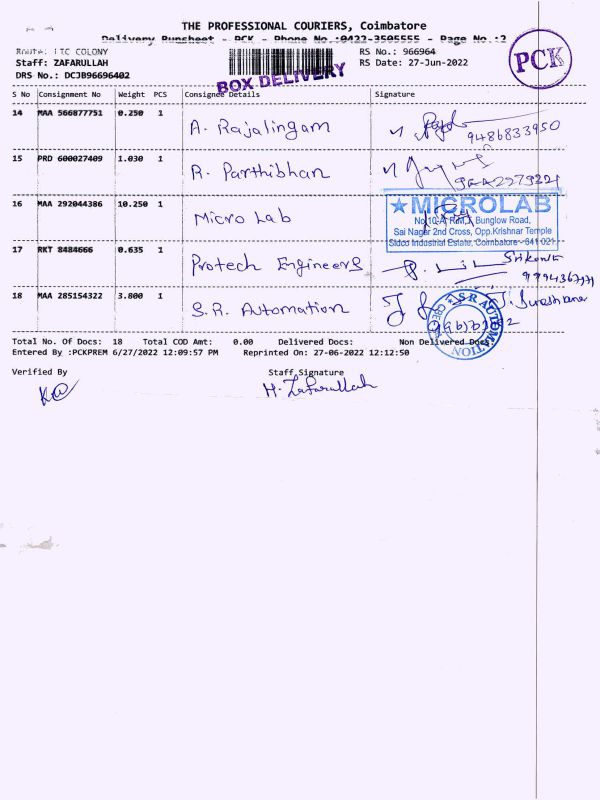 THE PROFESSIONAL COURIERS, Coimbatore
Delivery Runsheet - PCK - Phone No.:0422-3505555 - Page No.:2
Route: LIC COLONY
RS No.: 966964
Staff: ZAFARULLAH
RS Date: 27-Jun-2022
DRS No.: DCJB96696402
BOX DELIVERY
PCK
S No Consignment No Weight PCS Consignee Details Signature
14 MAA 566877751 0.250 1 A. Rajalingam 9486833950
15 PRD 600027409 1.030 1 R. Parthibhan
16 MAA 292044386 10.250 1 Micro Lab
★ MICROLAB
No.10-A, R.M.J. Bunglow Road,
Sai Nagar 2nd Cross, Opp.Krishnar Temple
Sidco Industrial Estate, Coimbatore - 641 021.
17 RKT 8484666 0.635 1 Protech Engineers
18 MAA 285154322 3.800 1 S.R. Automation
S R AUTOMATION
Total No. Of Docs: 18 Total COD Amt: 0.00 Delivered Docs: Non Delivered Docs:
Entered By :PCKPREM 6/27/2022 12:09:57 PM Reprinted On: 27-06-2022 12:12:50
Verified By Staff Signature
H. Zafarullah